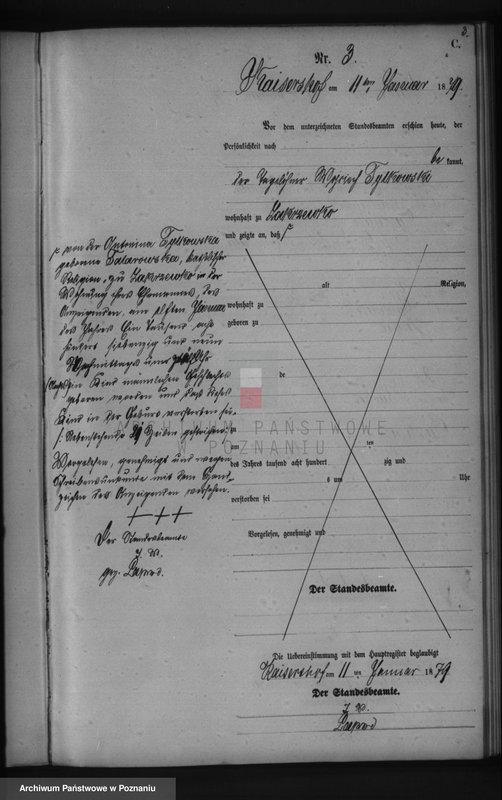 3.
C.
Nr. 3.
Kaisershof am 11ten Januar 1879.
Vor dem unterzeichneten Standesbeamten erschien heute, der
Persönlichkeit nach
bekannt,
der Tagelöhner Tylkowski
wohnhaft zu Zakrzewko
und zeigte an, daß
von der Antonina Tylkowska
geborene katholischer
Religion, zu Zakrzewko in der
Wohnung ihres Ehemannes, des
Anzeigenden, am elften Januar
des Jahres Ein tausend acht
hundert siebenzig und neun
Vormittags um Uhr
ein Kind männlichen Geschlechts
geboren worden und daß dieses
Kind in der Geburt verstorben sei
Zeilen gestrichen
Vorgelesen, genehmigt und wegen
Schreibensunkunde mit dem Hand-
zeichen des Anzeigenden versehen.
+ + +
Der Standesbeamte
gez.
alt Religion,
wohnhaft zu
geboren zu
de
zu
am ten
des Jahres tausend acht hundert zig und
s um Uhr
verstorben sei
Vorgelesen, genehmigt und
Der Standesbeamte.
Die Uebereinstimmung mit dem Hauptregister beglaubigt
Kaisershof am 11ten Januar 1879
Der Standesbeamte.
ARCHIWUM PAŃSTWOWE
POZNANIU
Archiwum Państwowe w Poznaniu